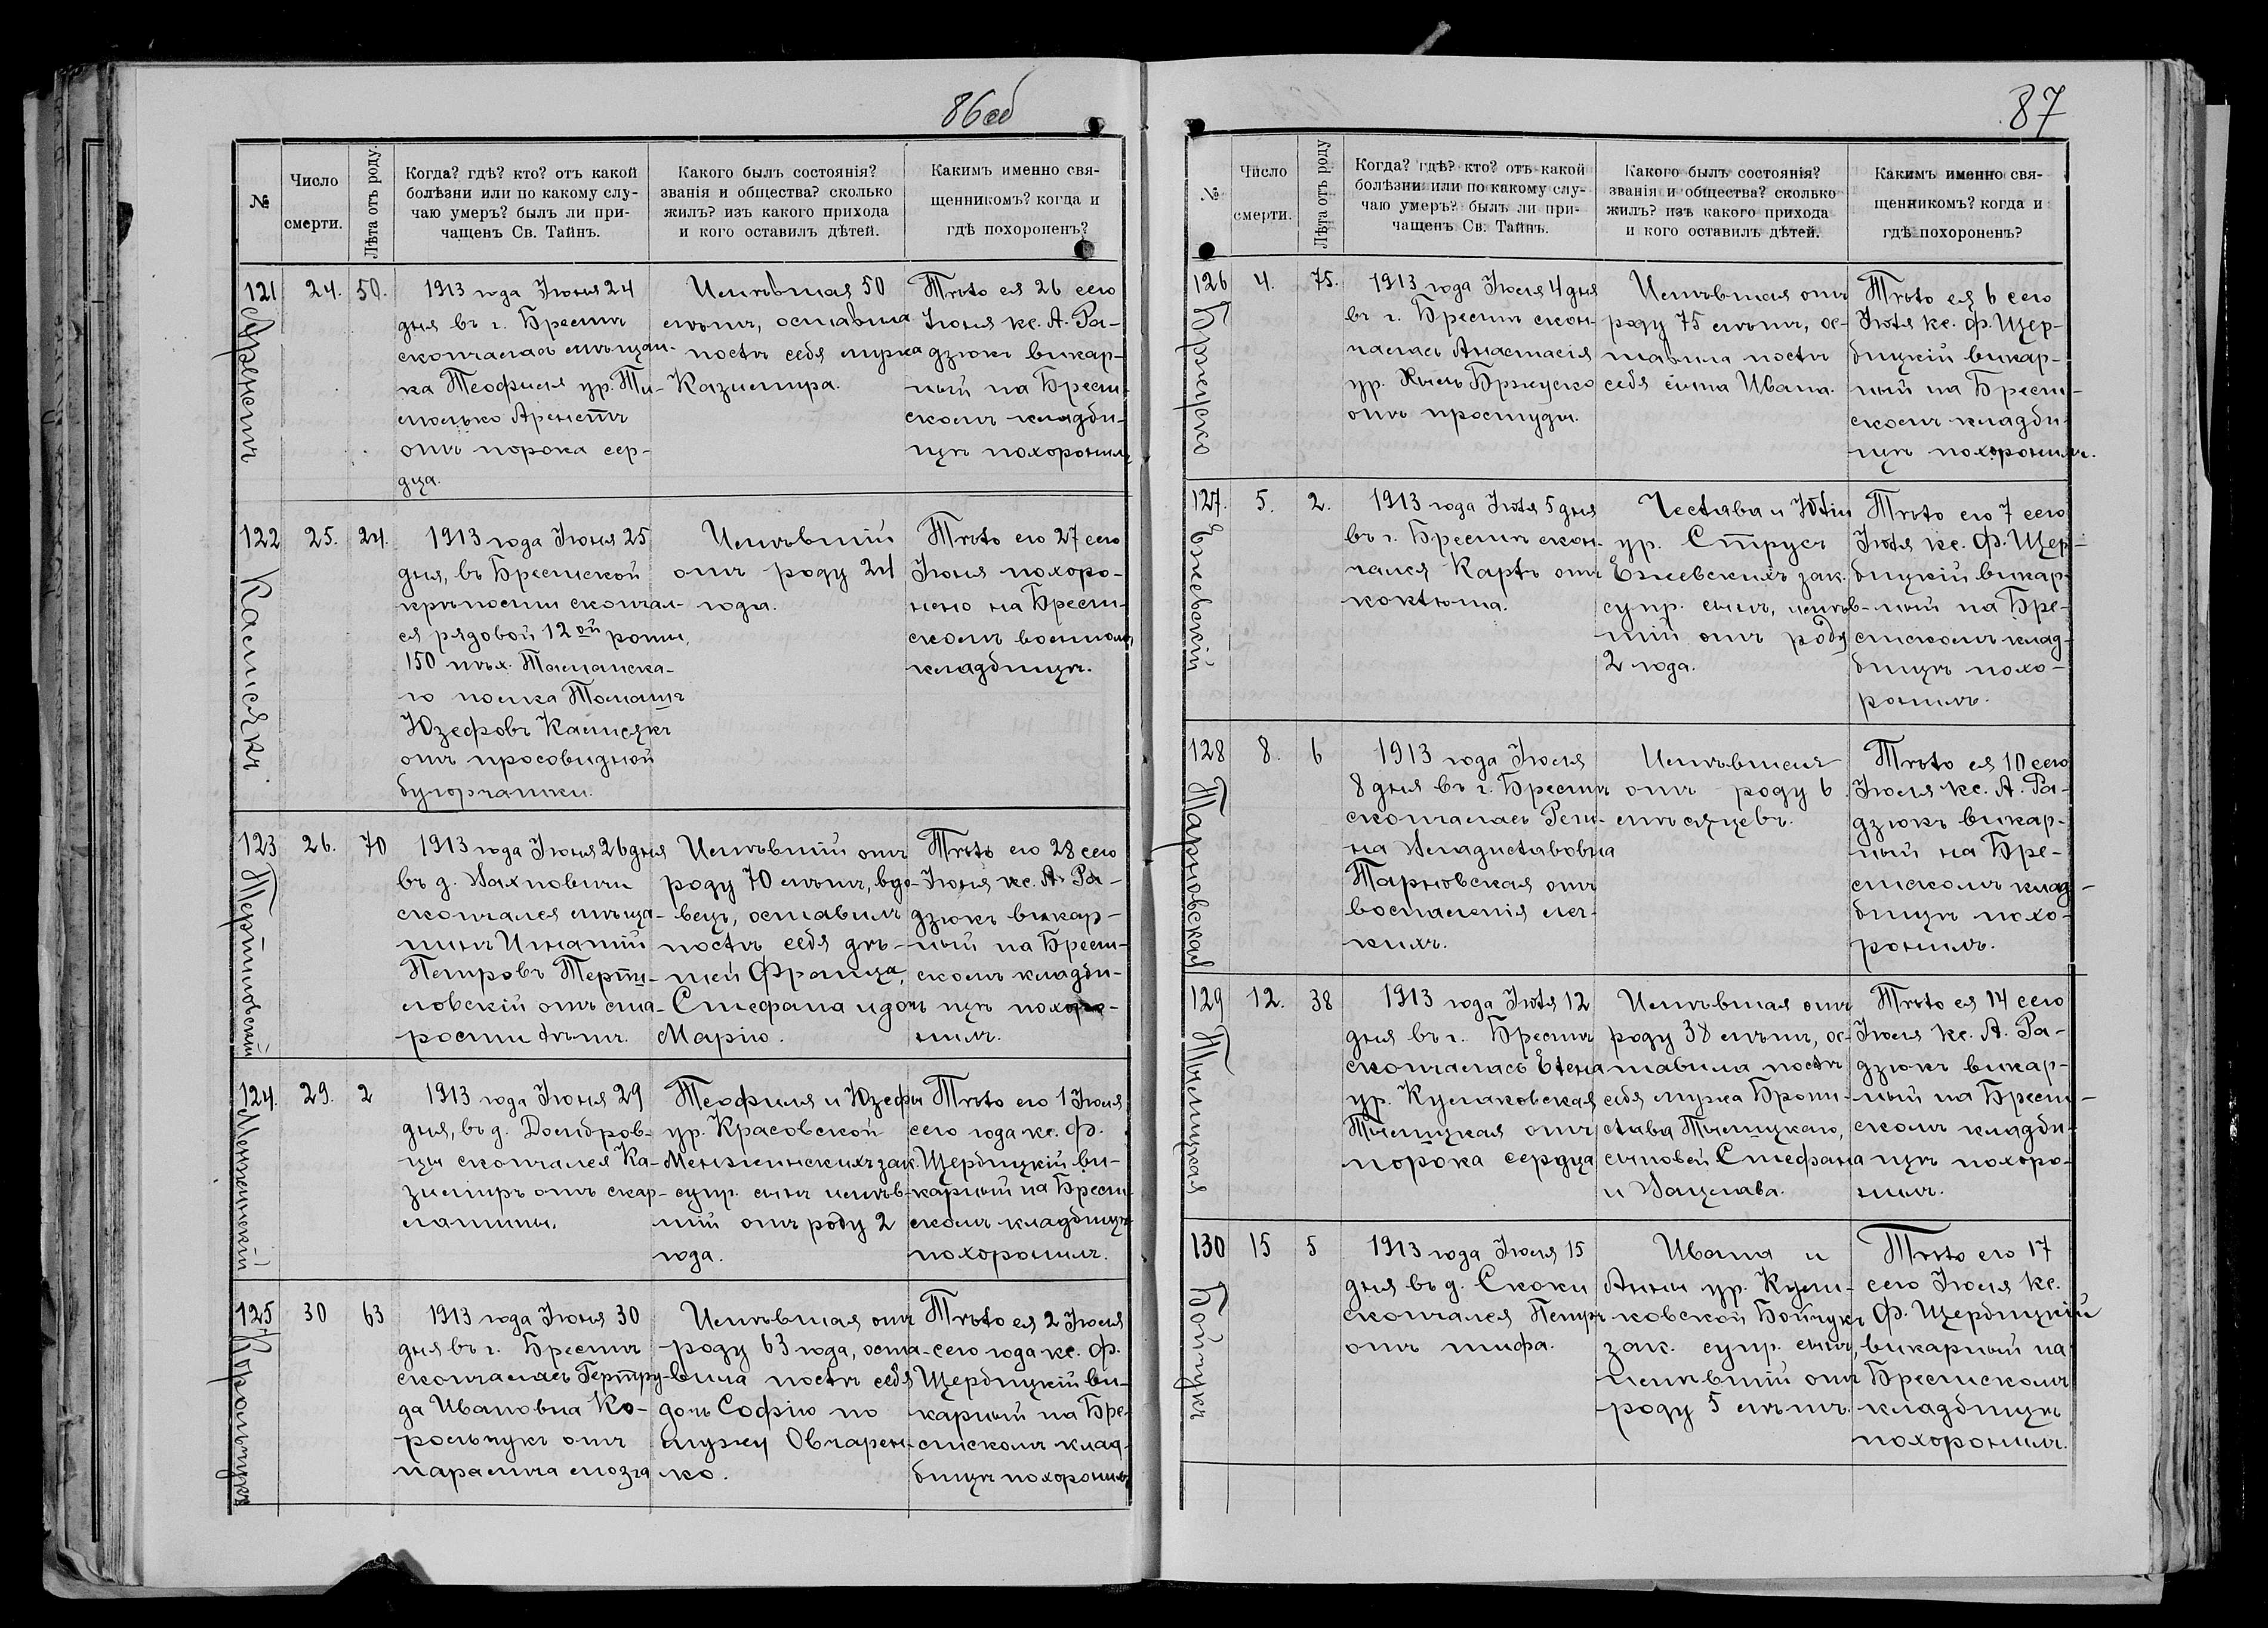 86об
№
Число
смерти.
Лѣта отъ роду.
Когда? гдѣ? кто? отъ какой
болѣзни или по какому слу-
чаю умеръ? былъ ли при-
чащенъ Св. Тайнъ.
Какого былъ состоянія?
званія и общества? сколько
жилъ? изъ какого прихода
и кого оставилъ дѣтей.
Какимъ именно свя-
щенникомъ? когда и
гдѣ похороненъ?
121
Аренстъ
24.
50.
1913 года Іюня 24
дня въ г. Брестѣ
скончалась мѣщан-
ка Теофиля ур. Ти-
молько Аренстъ
отъ порока сер-
дца.
Имѣвшая 50
лѣтъ, оставила
послѣ себя мужа
Казимира.
Тѣло ея 26 сего
Іюня кс. А. Ра-
дзюкъ викар-
ный на Брест-
скомъ кладби-
щѣ похоронилъ
122
Касптякъ
25.
24.
1913 года Іюня 25
дня, въ Брестской
крѣпости скончал-
ся рядовой 12ой роты,
150 пѣх. Таманска-
го полка Томашъ
Юзефовъ
отъ просовидной
бугорчатки.
Имѣвшій
отъ роду 24
года.
Тѣло его 27 сего
Іюня похоро-
нено на Брест-
скомъ военномъ
кладбищѣ.
123
Тертиловскій
26.
70
1913 года Іюня 26 дня
въ д. Вахновичи
скончался мѣща-
нинъ Игнатій
Петровъ Терти-
ловскій отъ ста-
рости лѣтъ.
Имѣвшій отъ
роду 70 лѣтъ, вдо-
вецъ, оставилъ
послѣ себя дѣ-
тей Франца,
Стефана и дочь
Марію.
Тѣло его 28 сего
Іюня кс. А. Ра-
дзюкъ викар-
ный на Брест-
скомъ кладби-
щѣ похоро-
нилъ.
124.
Менжинскій
29.
2
1913 года Іюня 29
дня, въ д. Домбров-
цы скончался Ка-
зимиръ отъ скар-
латины.
Теофиля и Юзефы
ур. Красовской
Менжинскихъ зак.
супр. сынъ имѣв-
шій отъ роду 2
года.
Тѣло его 1 Іюля
сего года кс. Ф.
Щербицкій ви-
карный на Брест-
скомъ кладбищѣ
похоронилъ.
125
Корольчукъ
30
63
1913 года Іюня 30
дня въ г. Брестѣ
скончалась Гертру-
да Ивановна Ко-
рольчукъ отъ
паралича мозга
Имѣвшая отъ
роду 63 года, оста-
вила послѣ себя
дочь Софію по
мужу Овчарен-
ко.
Тѣло ея 2 Іюля
сего года кс. Ф.
Щербицкій ви-
карный на Бре-
стскомъ клад-
бищѣ похоронилъ
87
№
Число
смерти.
Лѣта отъ роду
Когда? гдѣ? кто? отъ какой
болѣзни или по какому слу-
чаю умеръ? былъ ли при-
чащенъ Св. Тайнъ.
Какого былъ состоянія?
званія и общества? сколько
жилъ? изъ какого прихода
и кого оставилъ дѣтей.
Какимъ именно свя-
щенникомъ? когда и
гдѣ похороненъ?
126
4.
75.
1913 года Іюля 4 дня
въ г. Брестѣ скон-
чалась Анастасія
ур.
отъ простуды.
Имѣвшая отъ
роду 75 лѣтъ, ос-
тавила послѣ
себя сына Ивана.
Тѣло ея 6 сего
Іюля кс. Ф. Щер-
бицкій викар-
ный на Брест-
скомъ кладби-
щѣ похоронилъ.
127.
Ежевскій
5.
2.
1913 года Іюля 5 дня
въ г. Брестѣ скон-
чался Карлъ отъ
коклюша.
Чеслава и Юліи
ур. Струсъ
Ежевскихъ зак.
супр. сынъ, имѣв-
шій отъ роду
2 года.
Тѣло его 7 сего
Іюля кс. Ф. Щер-
бицкій викар-
ный на Бре-
стскомъ клад-
бищѣ похо-
ронилъ.
128
Тарновская
8.
6
1913 года Іюля
8 дня въ г. Брестѣ
скончалась Реги-
на Владиславовна
Тарновская отъ
воспаленія лег-
кихъ.
Имѣвшая
отъ роду 6
мѣсяцевъ.
Тѣло ея 10 сего
Іюля кс. А. Ра-
дзюкъ викар-
ный на Бре-
стскомъ клад-
бищѣ похо-
ронилъ.
129
Тылицкая
12.
38
1913 года Іюля 12
дня въ г. Брестѣ
скончалась Елена
ур. Кулаковская
Тылицкая отъ
порока сердца
Имѣвшая отъ
роду 38 лѣтъ, ос-
тавила послѣ
себя мужа Брони-
слава Тылицкаго,
сыновей Стефана
и Вацлава.
Тѣло ея 14 сего
Іюля кс. А. Ра-
дзюкъ викар-
ный на Брест-
скомъ кладби-
щѣ похоро-
нилъ.
130
Бойчукъ
15
5
1913 года Іюля 15
дня въ д. Скоки
скончался Петръ
отъ тифа.
Ивана и
Анны ур. Кули-
ковской Бойчукъ
зак. супр. сынъ,
имѣвшій отъ
роду 5 лѣтъ.
Тѣло его 17
сего Іюля кс.
Ф. Щербицкій
викарный на
Брестскомъ
кладбищѣ
похоронилъ.